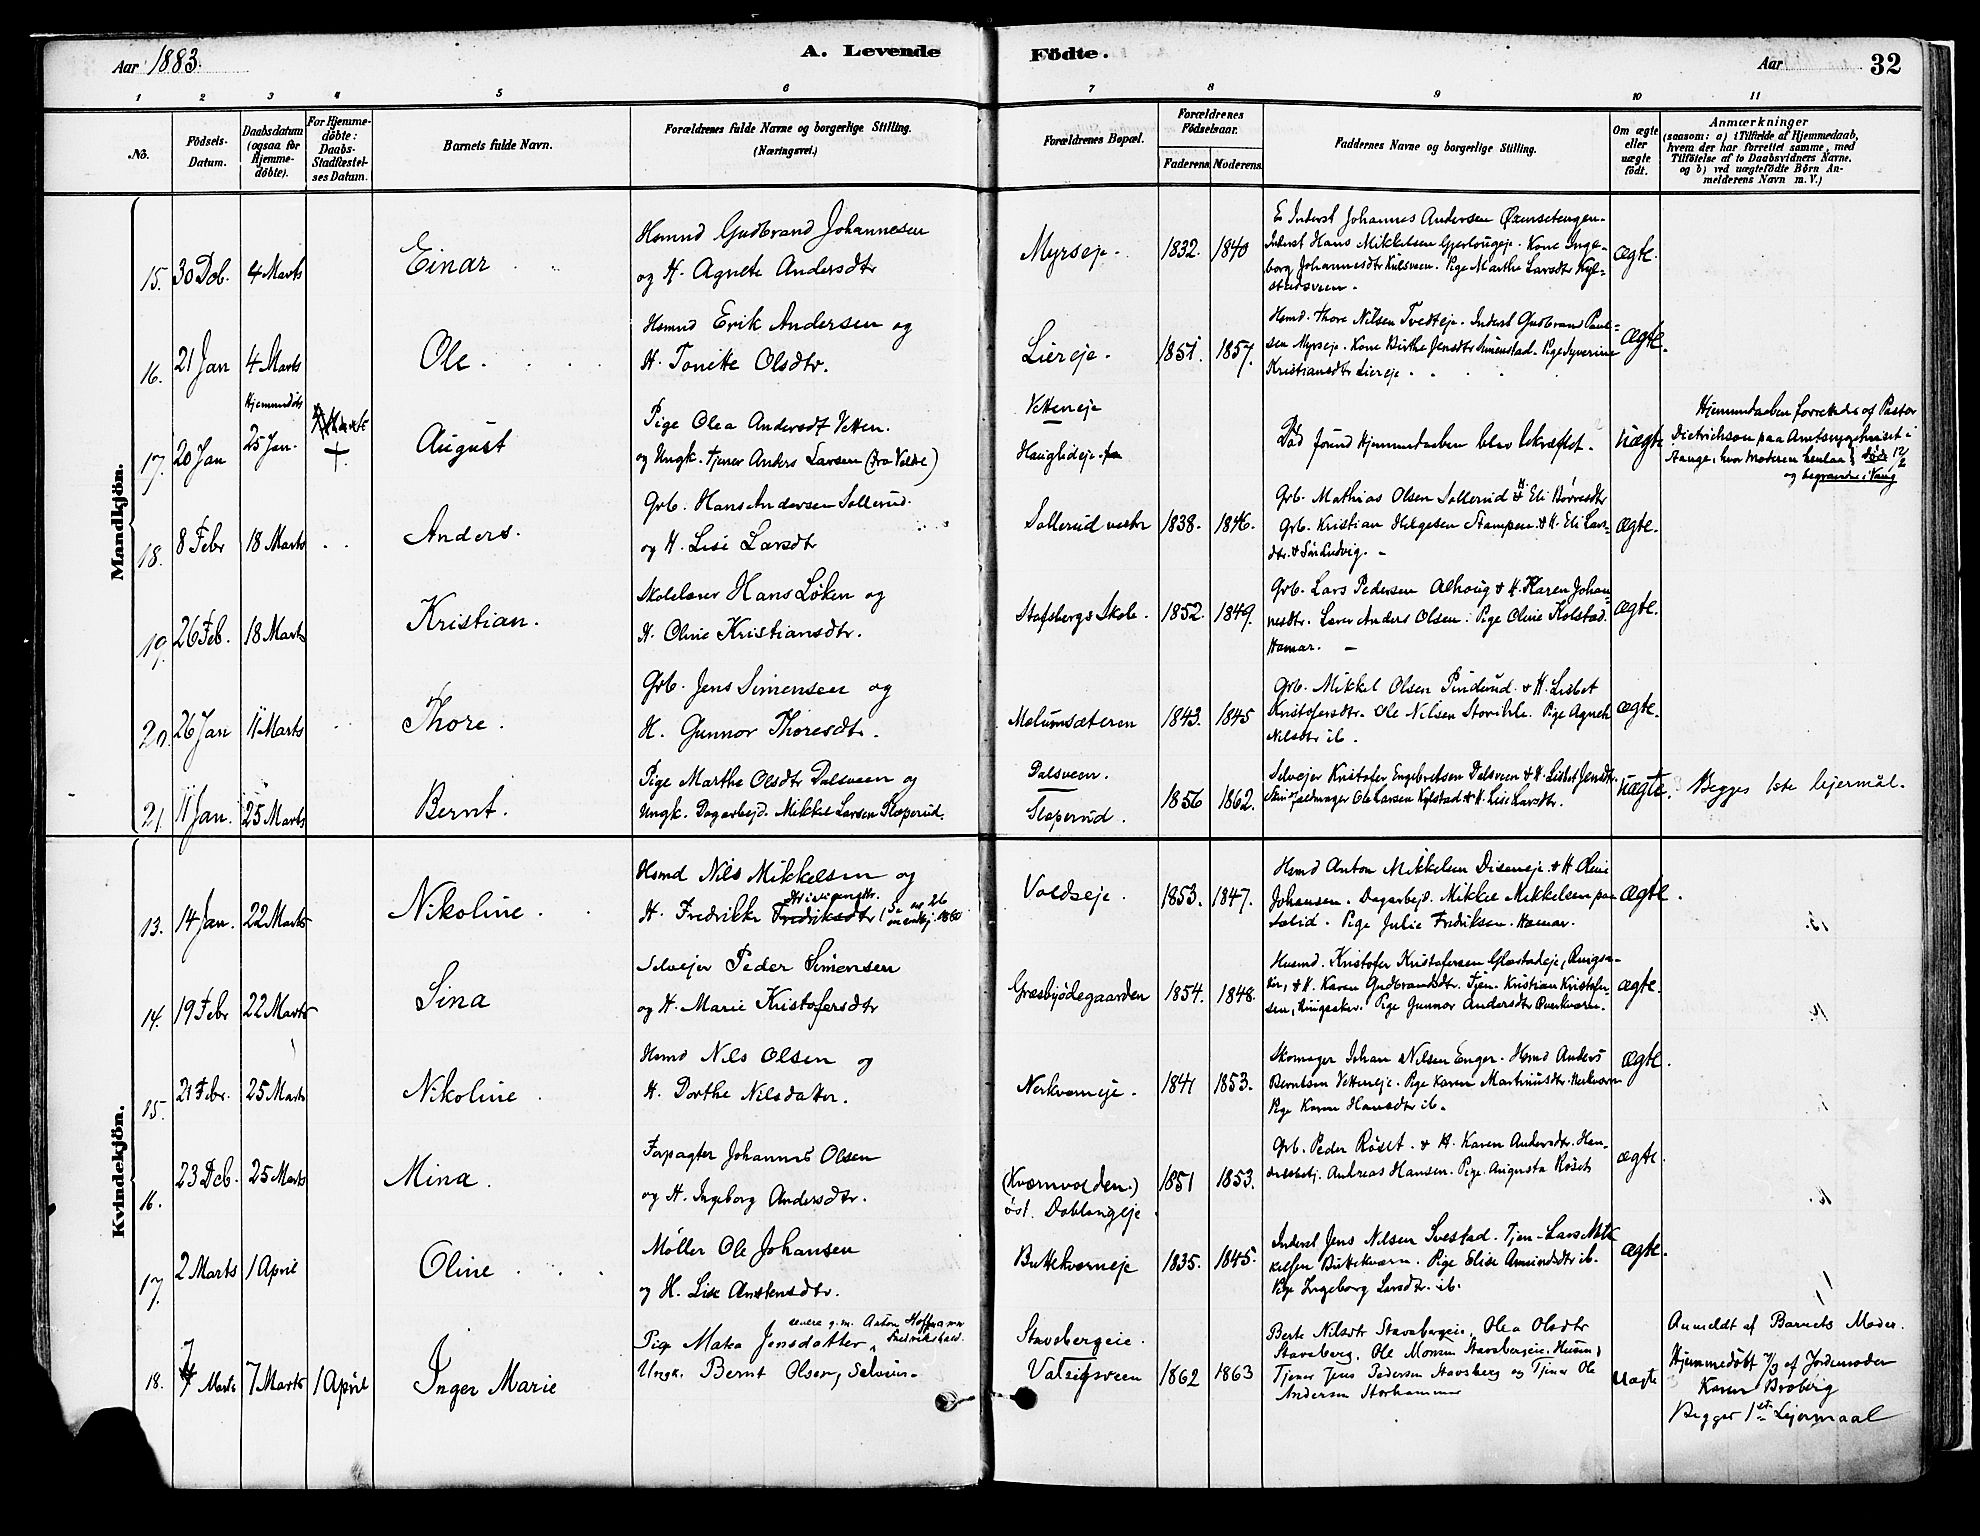 Aar 1883.
A. Levende
Födte.
Aar
32
1 2 3 4 5 6 7 8 9 10 11
No.
Födsels-
Datum.
Daabsdatum
(ogsaa for
Hjemme-
döbte).
For Hjemme-
döbte:
Daabs-
Stadfæstel-
ses Datum.
Barnets fulde Navn.
Forældrenes fulde Navne og borgerlige Stilling.
(Næringsvei.)
Forældrenes Bopæl.
Forældrenes
Födselsaar.
Faderens.
Moderens.
Faddernes Navne og borgerlige Stilling.
Om ægte
eller
uægte
födt.
Anmærkninger
(saasom: a) i Tilfælde af Hjemmedaab,
hvem der har forrettet samme, med
Tilföielse af to Daabsvidners Navne,
og b) ved uægtefödte Børn An-
melderens Navn m. V.)
Mandkjön.
15. 30 Dcb. 4 Marts
Einar
Hsmnd Gudbrand Johannesen
og H. Agnete Andersdtr
Myrseje.
1832. 1840
E. Inderst Johannes Andersen
Inderst Hans Mikkelsen Kone Inge-
borg Johannesdtr Pige Marthe Larsdtr Kyl-
stadsveen.
ægte.
16. 21 Jan 4 Marts
Ole.
Hsmnd Erik Andersen og
H. Tonette Olsdtr.
Liereje.
1851 1857.
Hsmd. Thore Nilsen Tvedteje. Inderst Gudbrand Paul-
sen Myrseje. Kone Birthe Jensdtr Simenstad. Pige Syverine
Kristiansdtr Liereje.
ægte.
17. 20 Jan
Hjemmedøbt
25 Jan.
+
August
Pige Olea Andersdt Vetten.
og Ungk. Tjener Anders Larsen (fra Volde)
Vetteneje
Hauglideje.
Død førend Hjemmedaaben blev bekræftet.
Uægte
Hjemmedaaben forrettedes af Pastor
Dietrichson paa Amtssygehuset i
Stange, hvor Moderen henlaa; døde 12/2
og begravedes i Vang
18. 8 Febr 18 Marts
Anders.
Grb. Hans Andersen Sollerud.
og H. Lise Larsdtr
Sollerud vestr
1838. 1846.
Grb. Mathias Olsen Sollerud & H. Eli Børresdtr
Grb. Kristian Helgesen Stampen & H. Eli Lars-
dtr. & Søn Ludvig.
ægte.
19. 26 Feb. 18 Marts
Kristian.
Skolelærer Hans Løken og
H. Oline Kristiansdtr.
Stafsbergs Skole.
1852. 1849.
Grb. Lars Pedersen Alhoug & H. Karen Johan-
nesdtr. Lærer Anders Olsen. Pige Oline Kolstad.
Hamar.
ægte.
20. 26 Jan 11 Marts
Thore.
Grb. Jens Simensen og
H. Gunnor Thoresdtr.
Melumsæteren
1843. 1845
Grb. Mikkel Olsen Finderud. & H. Lisbet
Kristofersdtr. Ole Nilsen Storihle. Pige Agnete
Nilsdtr ib.
ægte.
21. 11 Jan. 25 Marts
Bernt.
Pige Marthe Olsdtr Dalsveen og
Ungk. Dagarbejd. Mikkel Larsen Sloperud.
Dalsveen.
Sloperud.
1856 1862.
Selvejer Kristofer Engebretsen Dalsveen & H. Lisbet Jensdtr.
Ole Larsen Kylstad & H. Lise Larsdtr.
Uægte.
Begges 1ste lejermål.
Kvindekjön.
13. 14 Jan. 22 Marts
Nikoline.
Hsmd Nils Mikkelsen og
Kristiansdtr.
H. Fredrikke Fredriksdtr
Voldseje.
1853. 1847.
Hsmd Anton Mikkelsen Diseneje & H. Oline
Johansen. Dagarbejd. Mikkel Mikkelsen paa
Solid. Pige Julie Fredriksen. Hamar.
ægte.
14. 19 Febr 22 Marts
Sina
Selvejer Peder Simensen
og H. Marie Kristofersdtr
Græsbyødegaarden
1854. 1848.
Husmd. Kristofer Kristofersen Glæstadeje, Ringsa-
ker, & H. Karen Gudbrandsdtr. Tjen. Kristian Kristofer-
sen, Ringsaker. Pige Gunnor Andersdtr Overkværn.
ægte.
15. 21 Febr. 25 Marts
Nikoline
Hsmd Nils Olsen og
H. Dorthe Nilsdatter.
Nerkværneje.
1841 1853.
Skomager Johan Nilsen Enger. Hsmd Anders
Berntsen Vetteneje. Pige Karen Martinusdtr. Nerkværn
Pige Karen Hansdtr ib.
ægte.
16. 23 Dcb. 25 Marts
Mina.
Forpagter Johannes Olsen
og H. Ingeborg Andersdtr.
(Kværnvolden.)
øst. Doblougeje.
1851 1853.
Grb. Peder Røset. & H. Karen Andersdtr. Han-
delsbetj. Andreas Hansen. Pige Augusta Røset
ægte.
17. 2 Marts 1 April
Oline
Møller Ole Johansen
og H. Lise Anstensdtr.
Buttekværneje
1835. 1845.
Inderst Jens Nilsen Svestad. Tjen. Lars Mik-
kelsen Buttekværn. Pige Elise Amundsdtr ib.
Pige Ingeborg Larsdtr. ib.
ægte.
18. 7 Marts 7 Marts 1 April
Inger Marie
senere g. m. Anton Hoffmann
Fredrikshald.
Pige Mata Jensdatter,
Ungk. Bernt Olsen, Selveier-
Stavsbergeie.
Valsigsveen
1862 1863
Berte Nilsdtr Stavsbergeie, Olea Olsdtr
Stavsberg, Ole Monsen Stavsbergeie. Husm.,
Tjener Jens Pedersen Stavsberg og Tjener Ole
Andersen Storhammer
Uægte
Anmeldt af Barnets Moder.
Hjemmedöbt 7/3 af Jordemoder
Karen Broberg
Begges 1ste Lejermaal